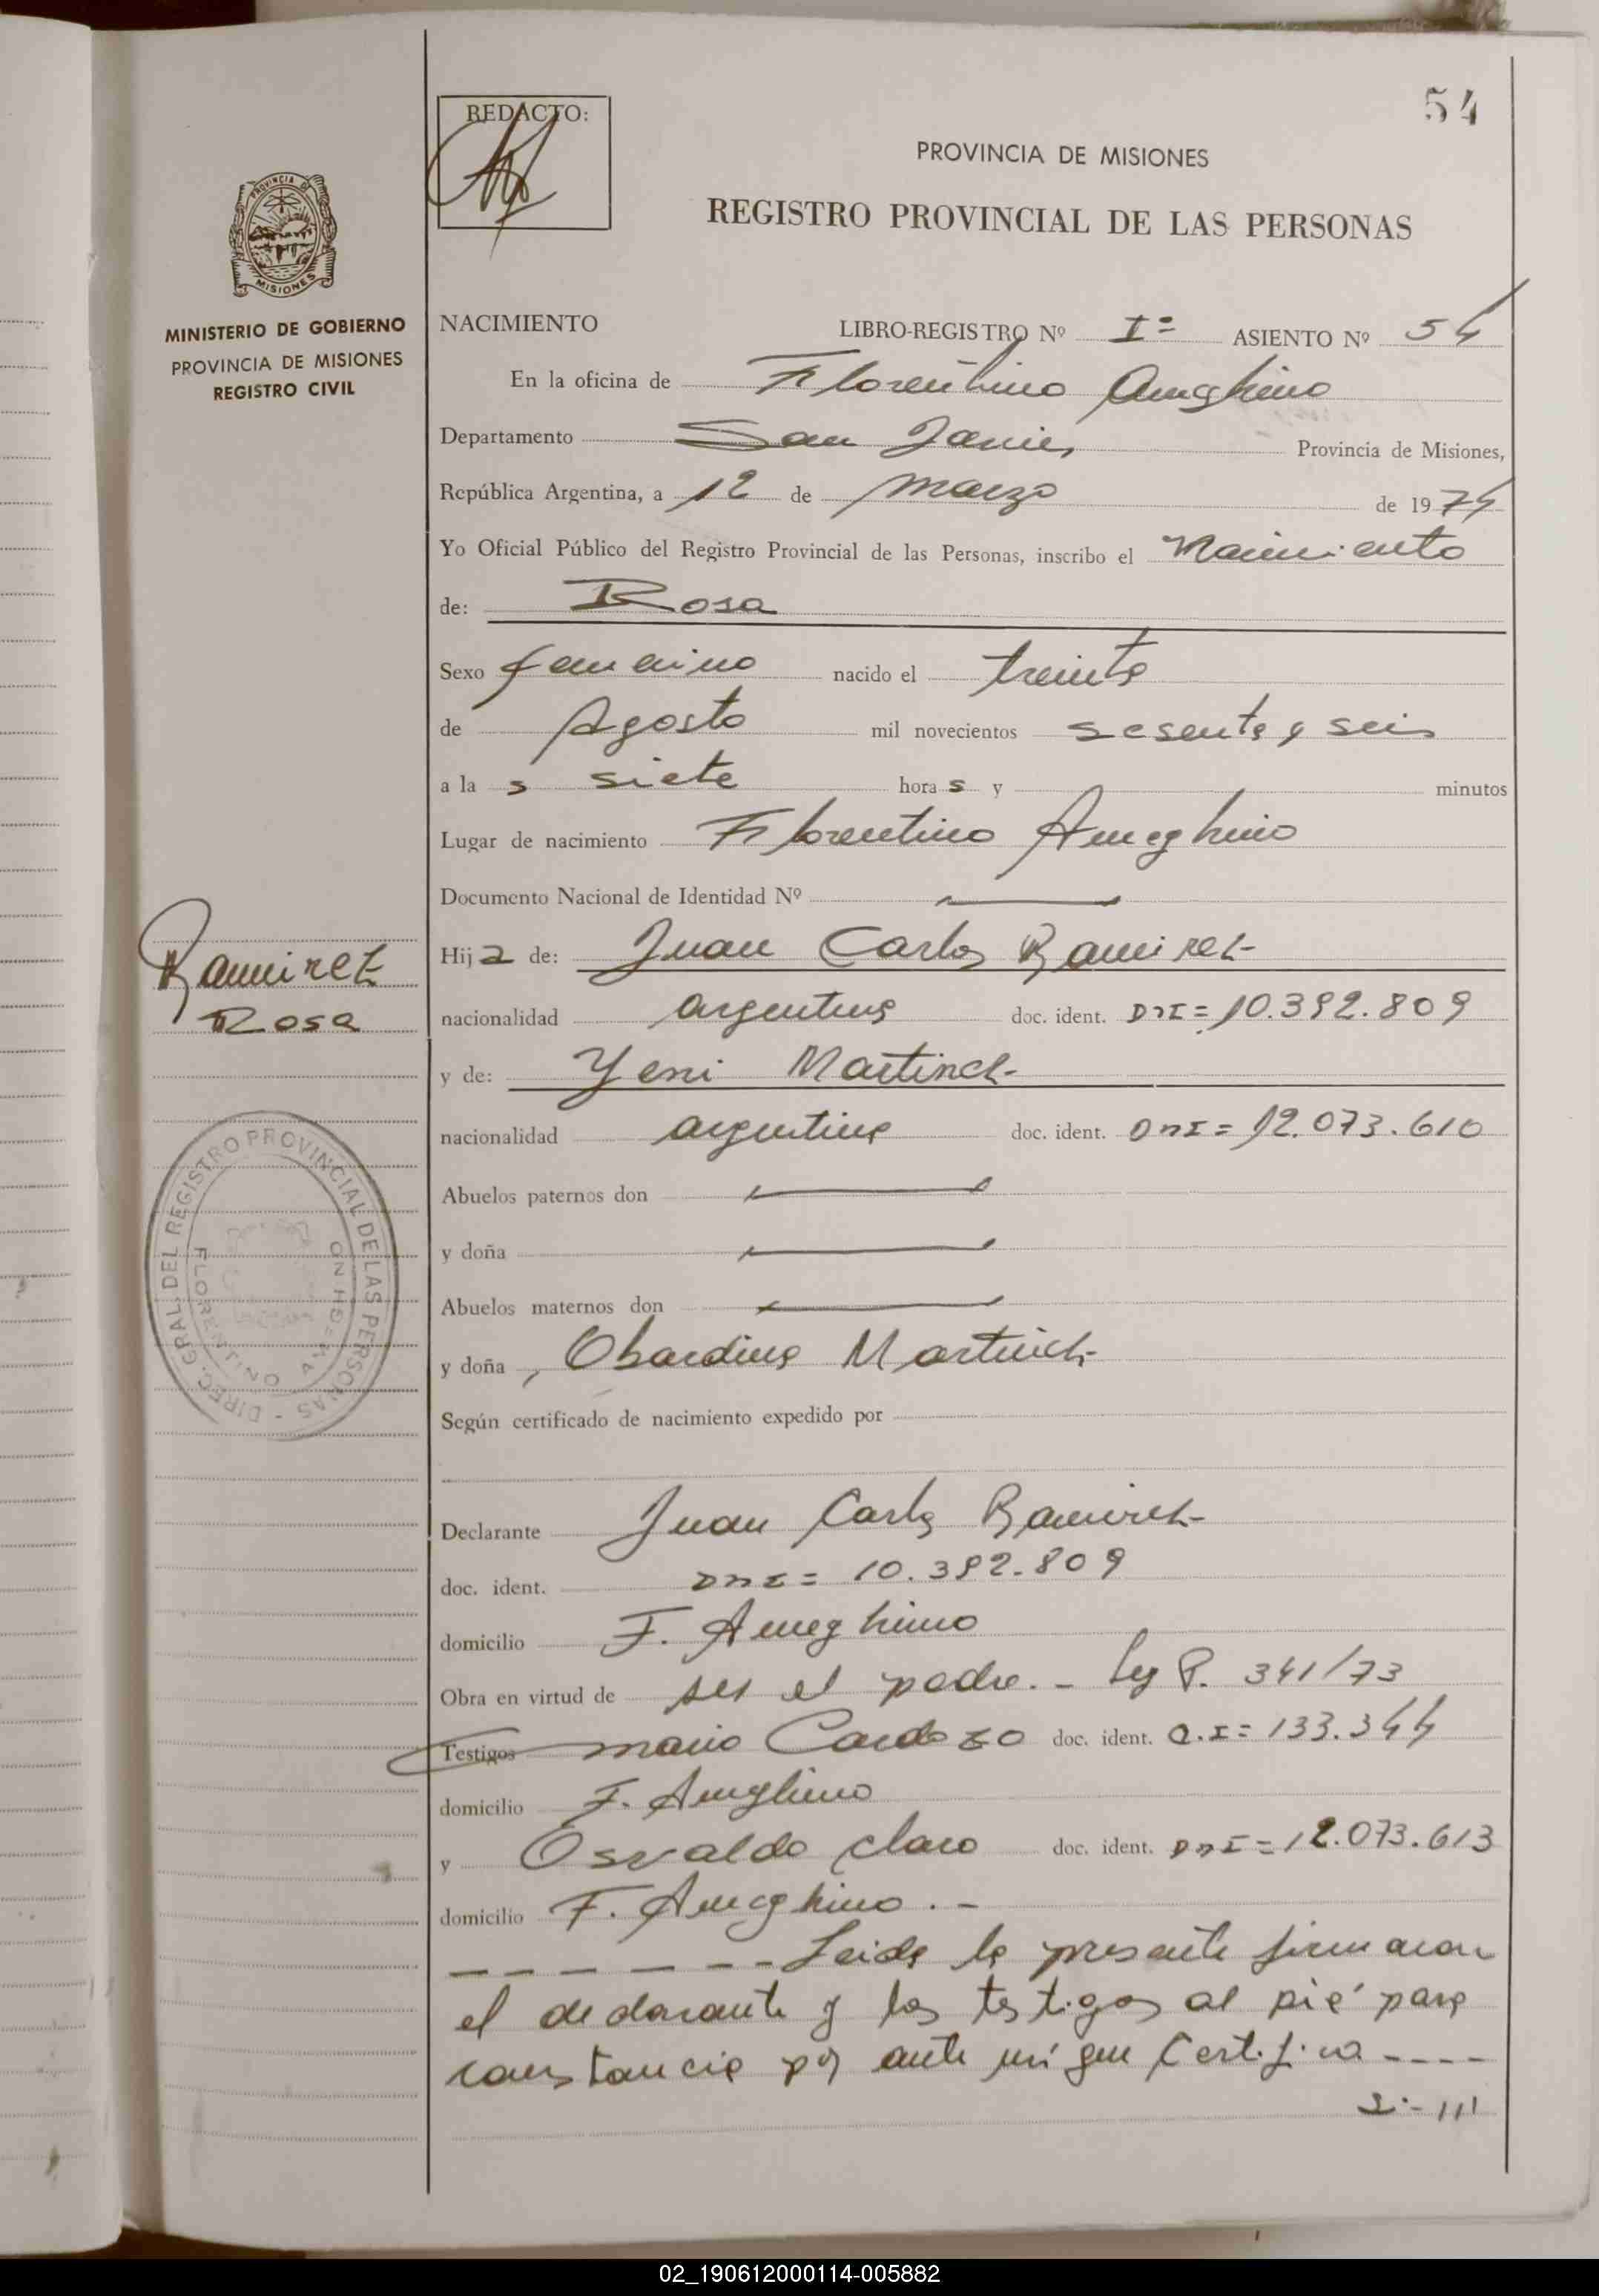 54
REDACTO:
PROVINCIA DE MISIONES
REGISTRO PROVINCIAL DE LAS PERSONAS
PROVINCIA DE MISIONES
MINISTERIO DE GOBIERNO
PROVINCIA DE MISIONES
REGISTRO CIVIL
NACIMIENTO LIBRO-REGISTRO Nº Iº ASIENTO Nº 54
En la oficina de Florentino Ameghino
Departamento San Javier Provincia de Misiones,
República Argentina, a 12 de marzo de 1974
Yo Oficial Público del Registro Provincial de las Personas, inscribo el Nacimiento
de: Rosa
Sexo femenino nacido el treinta
de Agosto mil novecientos sesenta y seis
a la s siete hora s y minutos
Lugar de nacimiento Florentino Ameghino
Documento Nacional de Identidad Nº
Hij a de: Juan Carlos Ramirez
Ramirez
Rosa
nacionalidad argentina doc. ident. DNI = 10.392.809
y de: Yeni Martinez
nacionalidad argentina doc. ident. DNI = 12.073.610
Abuelos paternos don
y doña
Abuelos maternos don
y doña Martinez
DIREC. GRAL. DEL REGISTRO PROVINCIAL DE LAS PERSONAS -
FLORENTINO AMEGHINO
Según certificado de nacimiento expedido por
Declarante Juan Carlos Ramirez
doc. ident. DNI = 10.392.809
domicilio F. Ameghino
Obra en virtud de ser el padre. - Ley P. 341/73
Testigos Mario Cardozo doc. ident. C.I = 133.344
domicilio F. Ameghino
y Osvaldo Claro doc. ident. DNI = 12.073.613
domicilio F. Ameghino . -
- - - - - - - Leida la presente firmaron
el declarante y los testigos al pié para
constancia por ante mi que Certifico - - - -
02_190612000114-005882